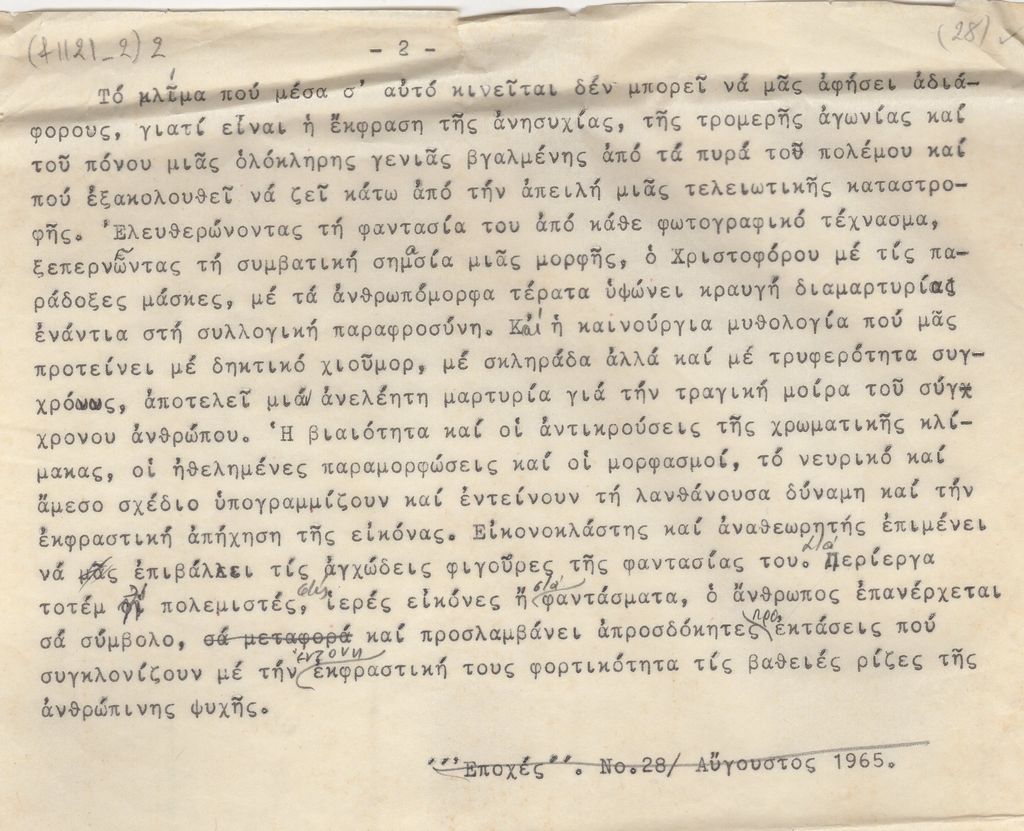 (41121_2) 2 - 2 - (28)
Τό κλίμα πού μέσα σ' αὐτό κινεῖται δέν μπορεῖ νά μᾶς ἀφήσει ἀδιά-
φορους, γιατί εἶναι ἡ ἔκφραση τῆς ἀνησυχίας, τῆς τρομερῆς ἀγωνίας καί
τοῦ πόνου μιᾶς ὁλόκληρης γενιᾶς βγαλμένης ἀπό τά πυρά τοῦ πολέμου καί
πού ἐξακολουθεῖ νά ζεῖ κάτω ἀπό τήν ἀπειλή μιᾶς τελειωτικῆς καταστρο-
φῆς. Ἐλευθερώνοντας τή φαντασία του ἀπό κάθε φωτογραφικό τέχνασμα,
ξεπερνῶντας τή συμβατική σημασία μιᾶς μορφῆς, ὁ Χριστοφόρου μέ τίς πα-
ράδοξες μάσκες, μέ τά ἀνθρωπόμορφα τέρατα ὑψώνει κραυγή διαμαρτυρίας
ἐνάντια στή συλλογική παραφροσύνη. Καί ἡ καινούργια μυθολογία πού μᾶς
προτείνει μέ δηκτικό χιοῦμορ, μέ σκληράδα ἀλλά καί μέ τρυφερότητα συγ-
χρόνως, ἀποτελεῖ μιά ἀνελέητη μαρτυρία γιά τήν τραγική μοίρα τοῦ σύγχ
χρονου ἀνθρώπου. Ἡ βιαιότητα καί οἱ ἀντικρούσεις τῆς χρωματικῆς κλί-
μακας, οἱ ἠθελημένες παραμορφώσεις καί οἱ μορφασμοί, τό νευρικό καί
ἄμεσο σχέδιο ὑπογραμμίζουν καί ἐντείνουν τή λανθάνουσα δύναμη καί τήν
ἐκφραστική ἀπήχηση τῆς εἰκόνας. Εἰκονοκλάστης καί ἀναθεωρητής ἐπιμένει
νά μᾶς ἐπιβάλλει τίς ἀγχώδεις φιγοῦρες τῆς φαντασίας του. Σιά Περίεργα
τοτέμ ἤ πολεμιστές, σέ ἱερές εἰκόνες ἤ σιά φαντάσματα, ὁ ἄνθρωπος ἐπανέρχεται
σά σύμβολο, σά μεταφορά καί προσλαμβάνει ἀπροσδόκητες προεκτάσεις πού
συγκλονίζουν μέ τήν ἔντονη ἐκφραστική τους φορτικότητα τίς βαθειές ρίζες τῆς
ἀνθρώπινης ψυχῆς.
"Εποχές". Νο.28/ Αὔγουστος 1965.